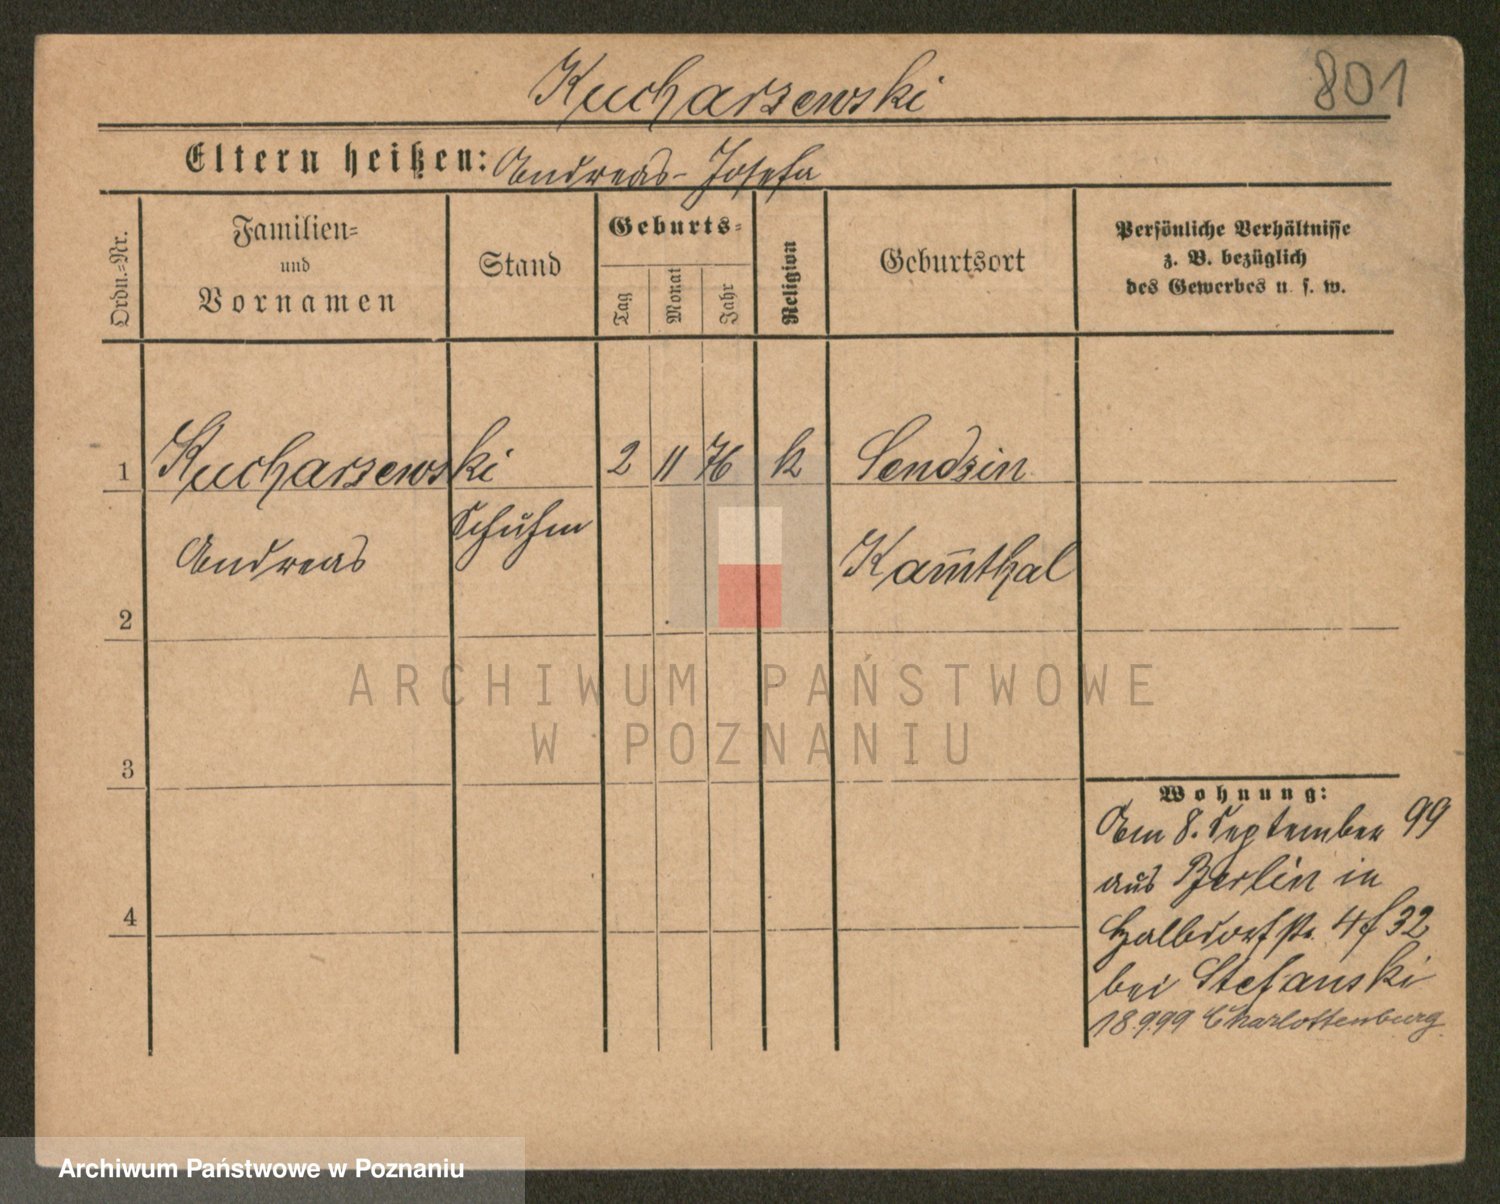 801
Kucharzewski
Eltern heißen: Andreas - Josefa
Ordn.-Nr.
Familien-
und
Vornamen
Stand
Geburts-
Tag
Monat
Jahr
Religion
Geburtsort
Persönliche Verhältnisse
z. B. bezüglich
des Gewerbes u. s. w.
1 Kucharzewski 2 11 76 k Sendzin
Andreas Schuhm Kam̅thal
2
3
4
Wohnung:
Am 8. September 99
aus Berlin in
Halbdorfstr. 4 32
bei Stefanski
18 9 99 Charlottenburg
ARCHIWUM PAŃSTWOWE
W POZNANIU
Archiwum Państwowe w Poznaniu